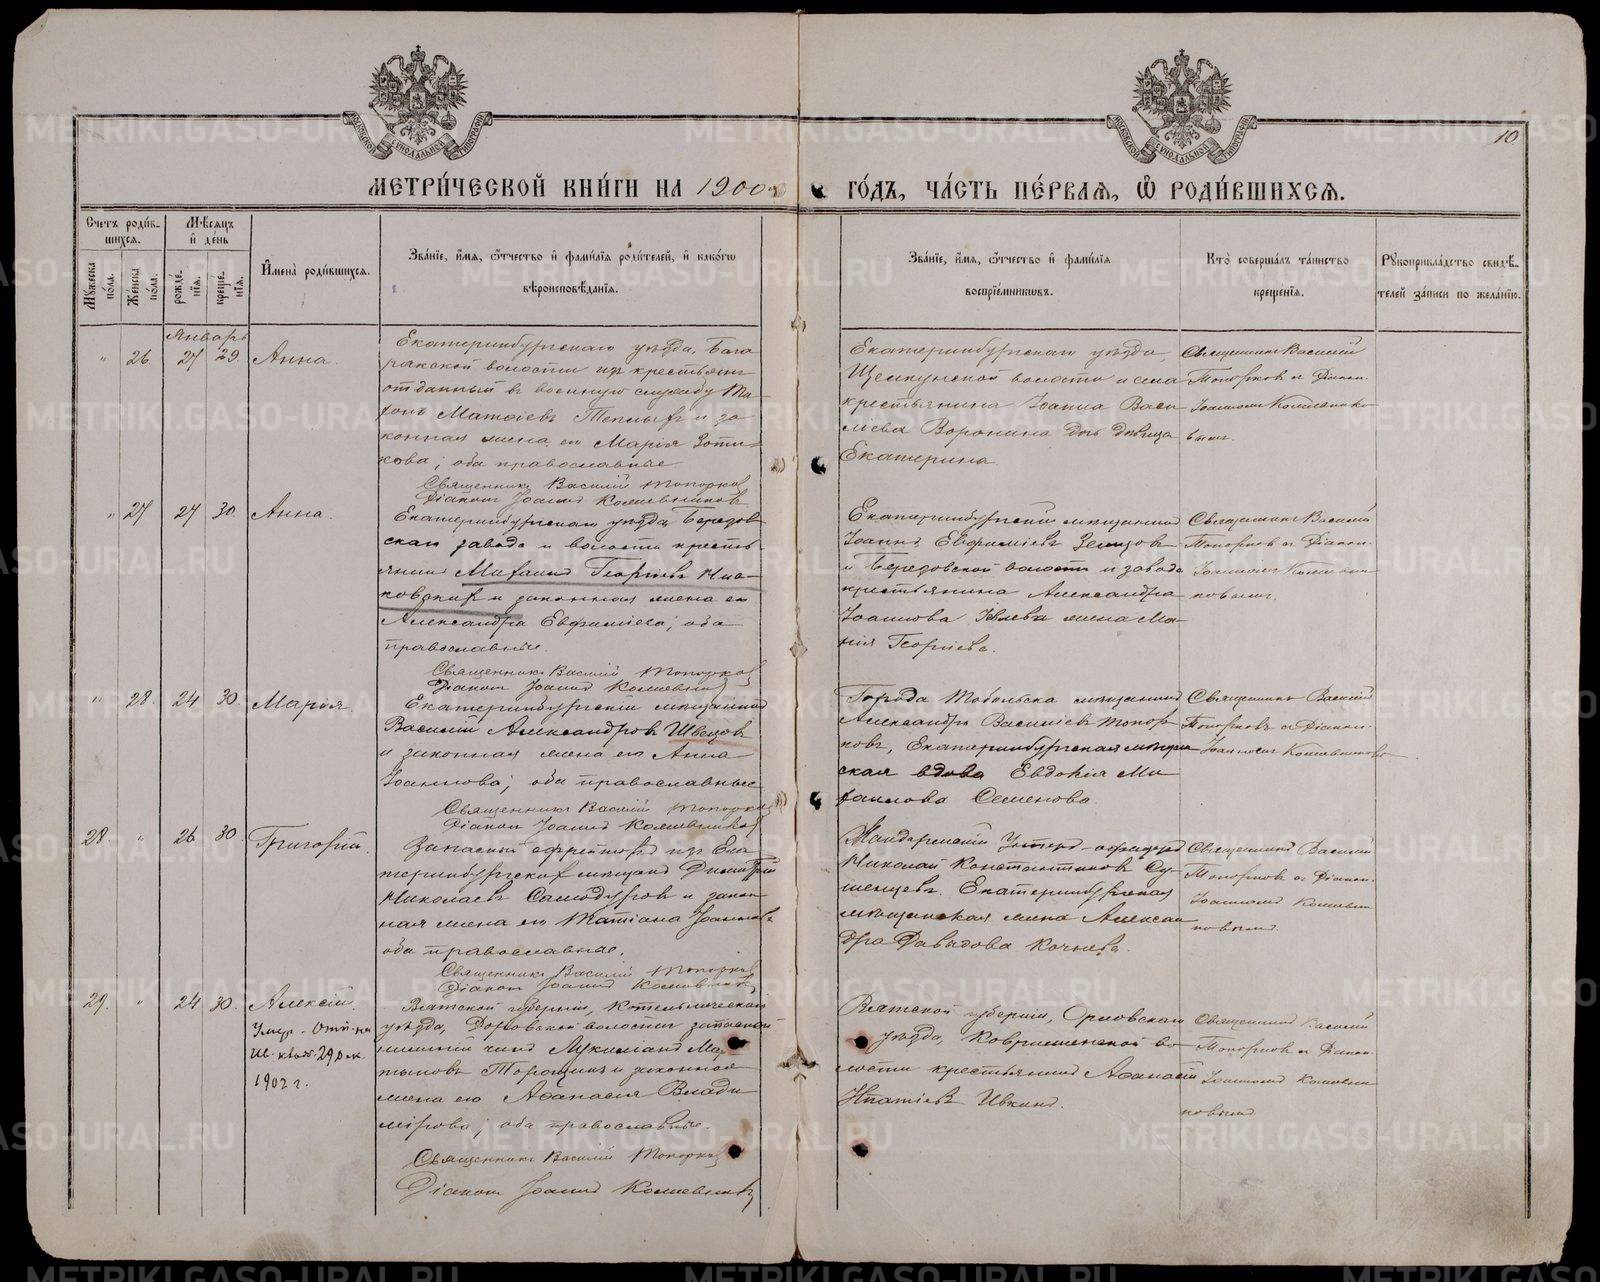 МЕТРИ́ЧЕСКОЙ КНИ́ГИ НА 1900
ГО́ДЪ, ЧА́СТЬ ПЕ́РВАѦ, Ѡ҆ РОДИ́ВШИХСѦ.
10
Счетъ роди́в-
шихся.
Мѣ́сяцъ
и҆ де́нь
Мꙋжеска по́ла.
Же́нска по́ла.
рожде́нїѧ.
креще́нїѧ.
И҆мена̀ роди́вшихсѧ.
Зва́нїе, и҆́мѧ, ѻ҆́тчество и҆ фами́лїѧ роди́телей, и҆ како́гѡ
вѣроисповѣ́данїѧ.
Зва́нїе, и҆́мѧ, ѻ҆́тчество и҆ фами́лїѧ
воспрїе́мникѡвъ.
Кто̀ соверша́лъ та́инство
креще́нїѧ.
Рꙋкоприкла́дство свидѣ́-
телей за́писи по жела́нїю.
Январь
" 26 27 29 Анна.
Екатеринбургскаго уѣзда, Бага
ракской волости изъ крестьянъ
отданный въ военную службу
конная жена его Марія Зоти-
кова; оба православные
Священникъ Василій Топорков
Діаконъ Іоаннъ Кожевников
Екатеринбургскаго уѣзда
волости и села
крестьянина Іоанна Васи
льева Воронина дочь дѣвица
Екатерина
Священникъ Василій
Топорков съ Діакон.
Іоанномъ Кожевнико
вымъ.
" 27 27 30. Анна.
Екатеринбургскаго уѣзда, Березов
скаго завода и волости кресть-
янинъ Михаилъ Георгіевъ
и законная жена его
Александра Евфиміева; оба
православные.
Священникъ Василій Топорков
Діаконъ Іоаннъ Кожевник
Екатеринбургскій мѣщанинъ
Іоаннъ Евфиміевъ
и Березовской волости и завода
крестьянина Александра
Іоаннова жена Ма-
рія Георгіева.
Священникъ Василій
Топорков съ Діакон.
Іоанномъ Кожевни
ковымъ.
" 28. 24 30. Марія.
Екатеринбургскій мѣщанинъ
Василій Александровъ Швецовъ
и законная жена его Анна
Іоаннова; оба православные
Священникъ Василій Топорков
Діаконъ Іоаннъ Кожевников
Города Тобольска мѣщанинъ
Александръ Василіевъ Топор-
ковъ, Екатеринбургская мѣщан
ская вдова Евдокія Ми
хаилова Семенова.
Священникъ Василій
Топорковъ съ Діакон.
Іоанномъ Кожевниковъ
28. " 26 30 Григорій.
Запасный ефрейторъ изъ Ека
теринбургскихъ мѣщанъ Димитрій
Николаевъ Самодуровъ и закон
ная жена его Татіана Іоаннова
оба православные.
Священникъ Василій Топорков
Діаконъ Іоаннъ Кожевник
Жандармскій Унтеръ-офицеръ
Николай Константиновъ Су-
шенцевъ. Екатеринбургская
мѣщанская жена Алексан
дра Давыдова Кочнева.
Священникъ Василій
Топорков съ Діакон.
Іоанномъ Кожевни
ковымъ
29. " 24 30. Алексій.
1902 г.
Вятской губерніи, Котельническаго
уѣзда, волости запасный
нижній чинъ Лукиліанъ Мар
тыновъ Торощинъ и законная
жена его Афанасія Влади
мірова; оба православные.
Священникъ Василій Топорков
Діаконъ Іоаннъ Кожевник
Вятской губерніи, Орловскаго
уѣзда, во-
лости крестьянинъ Афанасій
Игнатіевъ Ивкинъ.
Священникъ Василій
Топорков съ Діакон.
Іоанномъ Кожевни
ковымъ
METRIKI.GASO-URAL.RU